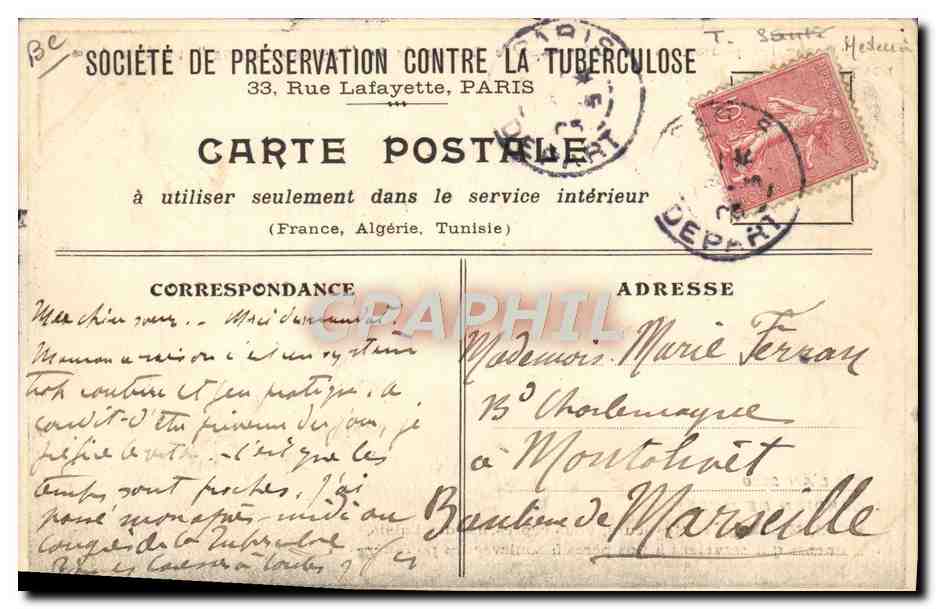 BC
T. Santé Medecin
SOCIÉTÉ DE PRÉSERVATION CONTRE LA TUBERCULOSE
33, Rue Lafayette, PARIS
PARIS
DEPART
DEPART
CARTE POSTALE
à utiliser seulement dans le service intérieur
(France, Algérie, Tunisie)
CORRESPONDANCE
Ma chère sœur. - Merci du mandat.
Maman a raison c'est un système
trop coûteux et peu pratique, a
condit. d'être prévenu du jour, je
préfère le - c'est que les
temps sont proches. J'ai
passé mon après-midi au
Congrès de la Tuberculose
caresses à toutes
CPAPHIL
ADRESSE
Mademois. Marie Ferran
Bd Charlemagne
à Montolivet
Banlieue de Marseille